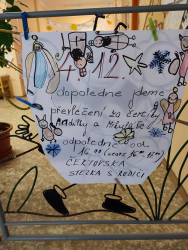 4.12.
dopoledne jdeme
převlečení za čerty
Mikuláše
odpoledne od
ČERTOVSKÁ
STEZKA S RODIČI